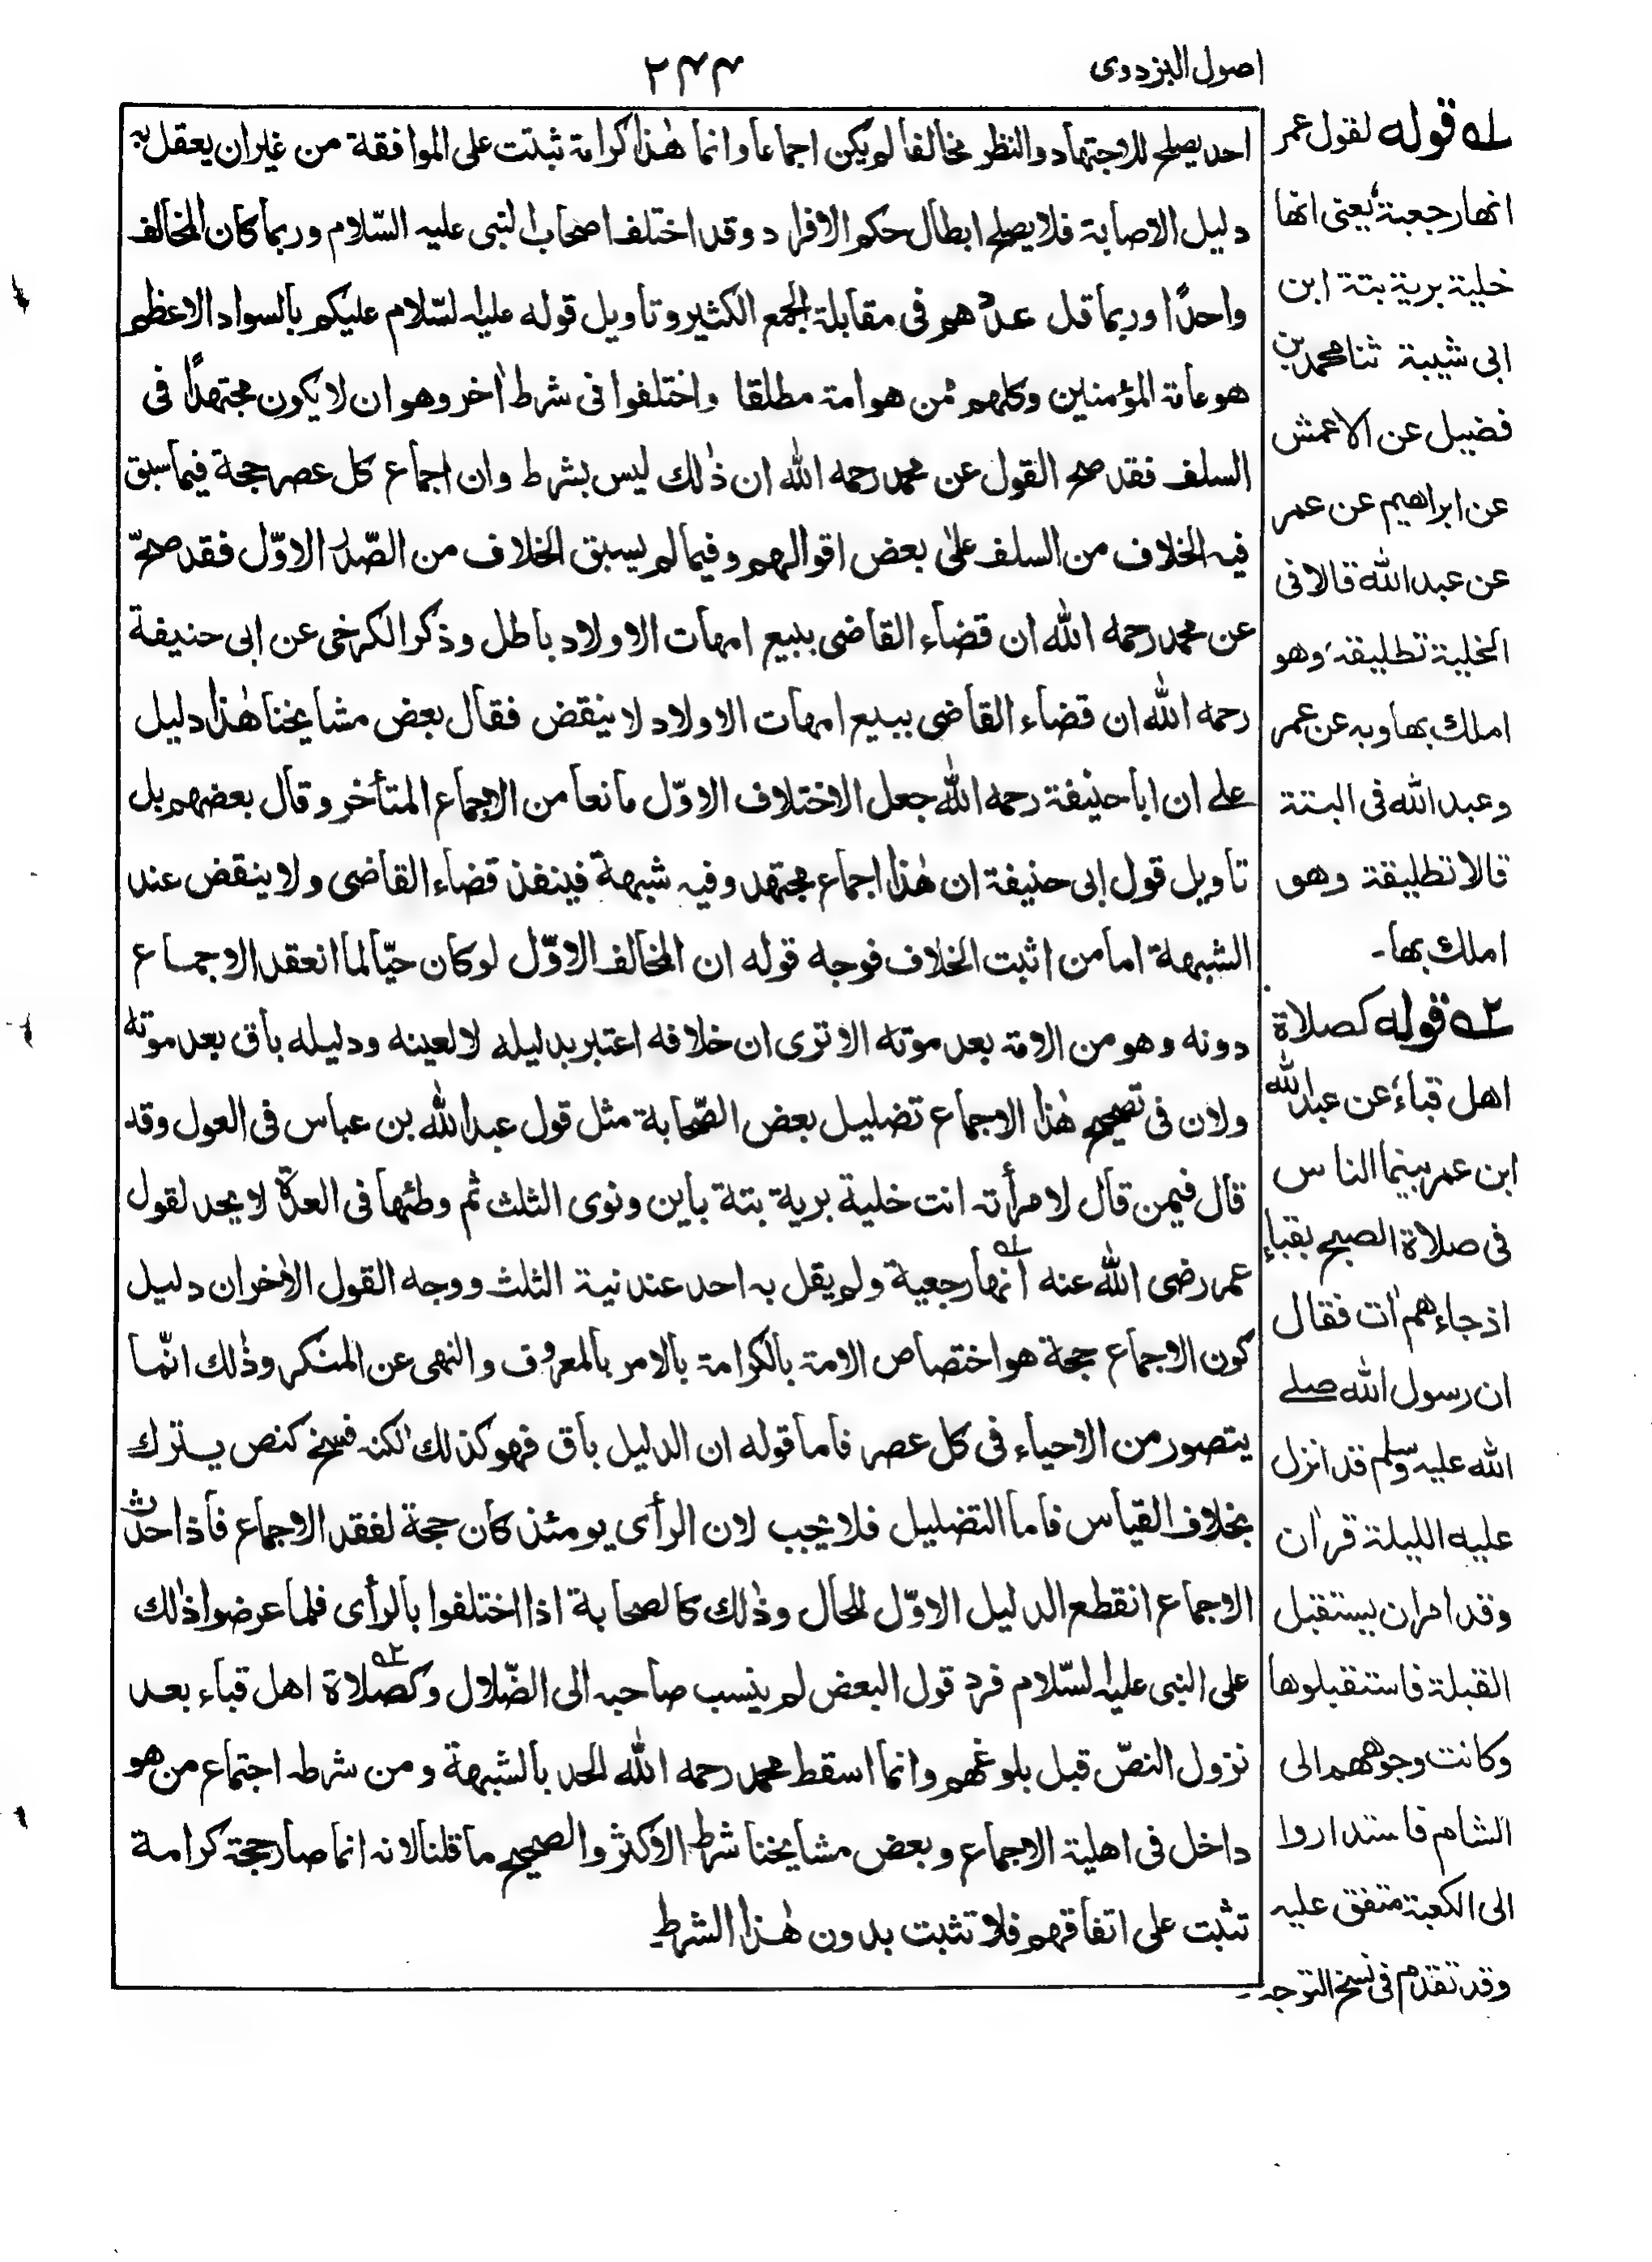 اصول البزدوى
۲۴۴
احد يصلح للاجتهاد والنظر مخالفا لم يكن اجماعا وانما هٰذا كرامة ثبتت على الموافقة من غيران يعقل به
دليل الاصابة فلا يصلح ابطال حكم الافراد وقد اختلف اصحاب النبى عليه السّلام وربما كان المخالف
واحدًا وربما قل عددهم فى مقابلة الجمع الكثير وتاويل قوله عليه السّلام عليكم بالسواد الاعظم
هو عامة المؤمنين وكلهم ممن هو امة مطلقا واختلفوا فى شرط اٰخر وهو ان لا يكون مجتهدًا فى
السلف فقد صح القول عن محمد رحمه الله ان ذٰلك ليس بشرط وان اجماع كل عصر حجة فيما سبق
فيه الخلاف من السلف علىٰ بعض اقوالهم وفيما لم يسبق الخلاف من الصّدر الاوّل فقد صحّ
عن محمد رحمه الله ان قضاء القاضى ببيع امهات الاولاد باطل وذكر الكرخى عن ابى حنيفة
رحمه الله ان قضاء القاضى ببيع امهات الاولاد لا ينقض فقال بعض مشايخنا هٰذا دليل
على ان ابا حنيفة رحمه الله جعل الاختلاف الاوّل مانعا من الاجماع المتأخر وقال بعضهم بل
تاويل قول ابى حنيفة ان هٰذا اجماع مجتهد وفيه شبهة فينفذ قضاء القاضى ولا ينقض عند
الشبهة اما من اثبت الخلاف فوجه قوله ان المخالف الاوّل لو كان حيّا لما انعقد الاجماع
دونه وهو من الامة بعد موته الا ترى ان خلافه اعتبر بدليله لا لعينه ودليله باق بعد موته
ولان فى تصحيح هٰذا الاجماع تضليل بعض الصّحابة مثل قول عبد الله بن عباس فى العول وقد
قال فيمن قال لامرأته انت خلية برية بتة باين ونوى الثلث ثم وطئها فى العدة لا يحد لقول
عمر رضى الله عنه انها رجعية ۱ ولم يقل به احد عند نية الثلث ووجه القول الاٰخر ان دليل
كون الاجماع حجة هو اختصاص الامة بالكرامة بالامر بالمعروف والنهى عن المنكر وذٰلك انّما
يتصور من الاحياء فى كل عصر فاما قوله ان الدليل باق فهو كذلك لكنه نسخ كنص يترك
بخلاف القياس فاما التضليل فلا يجب لان الرأى يومئذ كان حجة لفقد الاجماع فاذا حدث
الاجماع انقطع الدليل الاوّل للحال وذٰلك كالصحابة اذا اختلفوا بالرأى فلما عرضوا ذٰلك
على النبى عليه السّلام فرد قول البعض لم ينسب صاحبه الى الضّلال وكصلاة ۲ اهل قباء بعد
نزول النصّ قبل بلوغهم وانما اسقط محمد رحمه الله الحد بالشبهة ومن شرطه اجتماع من هو
داخل فى اهلية الاجماع وبعض مشايخنا شرط الاكثر والصحيح ما قلنا لانه انما صار حجة كرامة
تثبت على اتفاقهم فلا تثبت بدون هٰذا الشرط۔
۱ قوله لقول عمر
انها رجعية يعنى انها
خلية برية بتة ابن
ابى شيبة ثنا محمد بن
فضيل عن الاعمش
عن ابراهيم عن عمر
عن عبد الله قالا فى
الخلية تطليقة وهو
املك بها وبه عن عمر
وعبد الله فى البتة
قالا تطليقة وهو
املك بها۔
۲ قوله كصلاة
اهل قباء عن عبد الله
ابن عمر بينما الناس
فى صلاة الصبح بقباء
اذ جاءهم اٰت فقال
ان رسول الله صلے
الله عليه وسلم قد انزل
عليه الليلة قراٰن
وقد امر ان يستقبل
القبلة فاستقبلوها
وكانت وجوههم الى
الشام فاستداروا
الى الكعبة متفق عليه
وقد تقدم فى نسخ التوجه۔